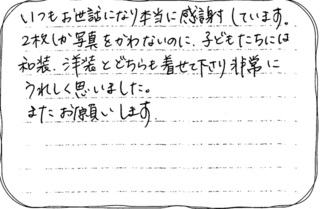 いつもお世話になり本当に感謝しています。
2枚しか写真をかわないのに、子どもたちには
和装、洋装とどちらも着せて下さり非常に
うれしく思いました。
またお願いします